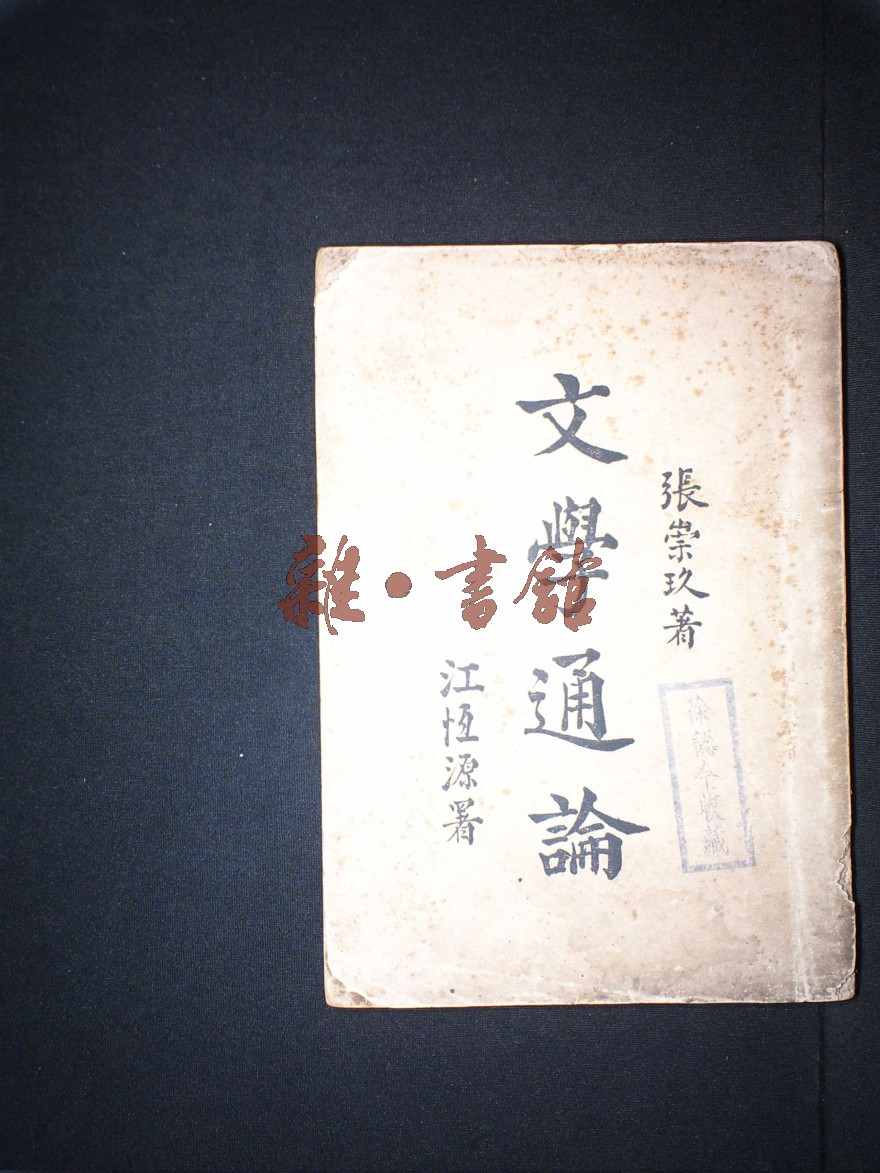 張崇玖著
文學通論
江恆源署
雜·書館
徐認今收藏